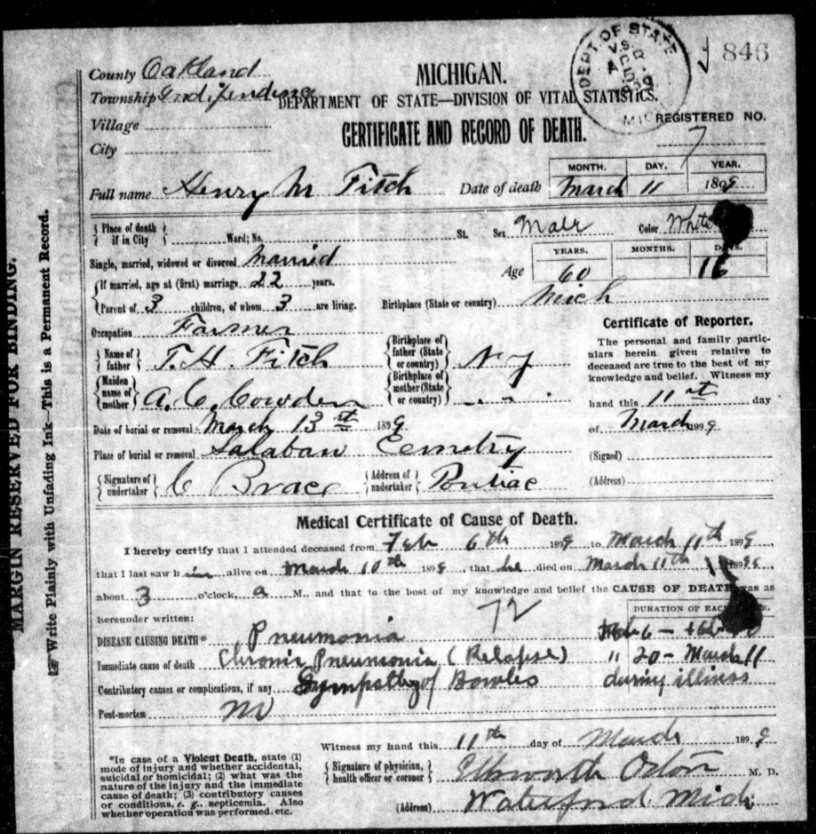 846
County Oakland
MICHIGAN.
DEPT OF STATE
Township Independence
DEPARTMENT OF STATE—DIVISION OF VITAL STATISTICS.
Village
CERTIFICATE AND RECORD OF DEATH.
REGISTERED NO.
City
7
Full name Henry M Fitch Date of death
MONTH. DAY. YEAR.
March 11 1899
Place of death if in City Ward; No. St. Sex Male Color White
Single, married, widowed or divorced married
Age
YEARS. MONTHS. DAYS.
60 16
If married, age at (first) marriage 22 years.
Parent of 3 children, of whom 3 are living. Birthplace (State or country) Mich
Occupation Farmer
Name of father T. H. Fitch
Birthplace of father (State or country) N Y
Maiden name of mother A. C. Cowden
Birthplace of mother (State or country) " "
Date of burial or removal March 13 1899
Place of burial or removal Cemetry
Signature of undertaker C Brace Address of undertaker Pontiac
Certificate of Reporter.
The personal and family partic-
ulars herein given relative to
deceased are true to the best of my
knowledge and belief. Witness my
hand this 11 day
of March 1899
(Signed)
(Address)
Medical Certificate of Cause of Death.
I hereby certify that I attended deceased from Feb 6th 1899 to March 11th 1899
that I last saw him alive on March 10th 1899, that he died on March 11th 1899,
about 3 o'clock, a M., and that to the best of my knowledge and belief the CAUSE OF DEATH was as
hereunder written:
72
DURATION OF EACH CAUSE.
DISEASE CAUSING DEATH* Pneumonia Feb 6 –
Immediate cause of death Chronic Pneumonia (Relapse) " 20 – March 11
Contributory causes or complications, if any of Bowles during illness
Post-mortem no
Witness my hand this 11th day of March 1899
Signature of physician, health officer or coroner Ellsworth Orton M. D.
(Address) Waterford Mich
*In case of a Violent Death, state (1)
mode of injury and whether accidental,
suicidal or homicidal; (2) what was the
nature of the injury and the immediate
cause of death; (3) contributory causes
or conditions, e. g., septicemia. Also
whether operation was performed, etc.
MARGIN RESERVED FOR BINDING.
Write Plainly with Unfading Ink—This is a Permanent Record.